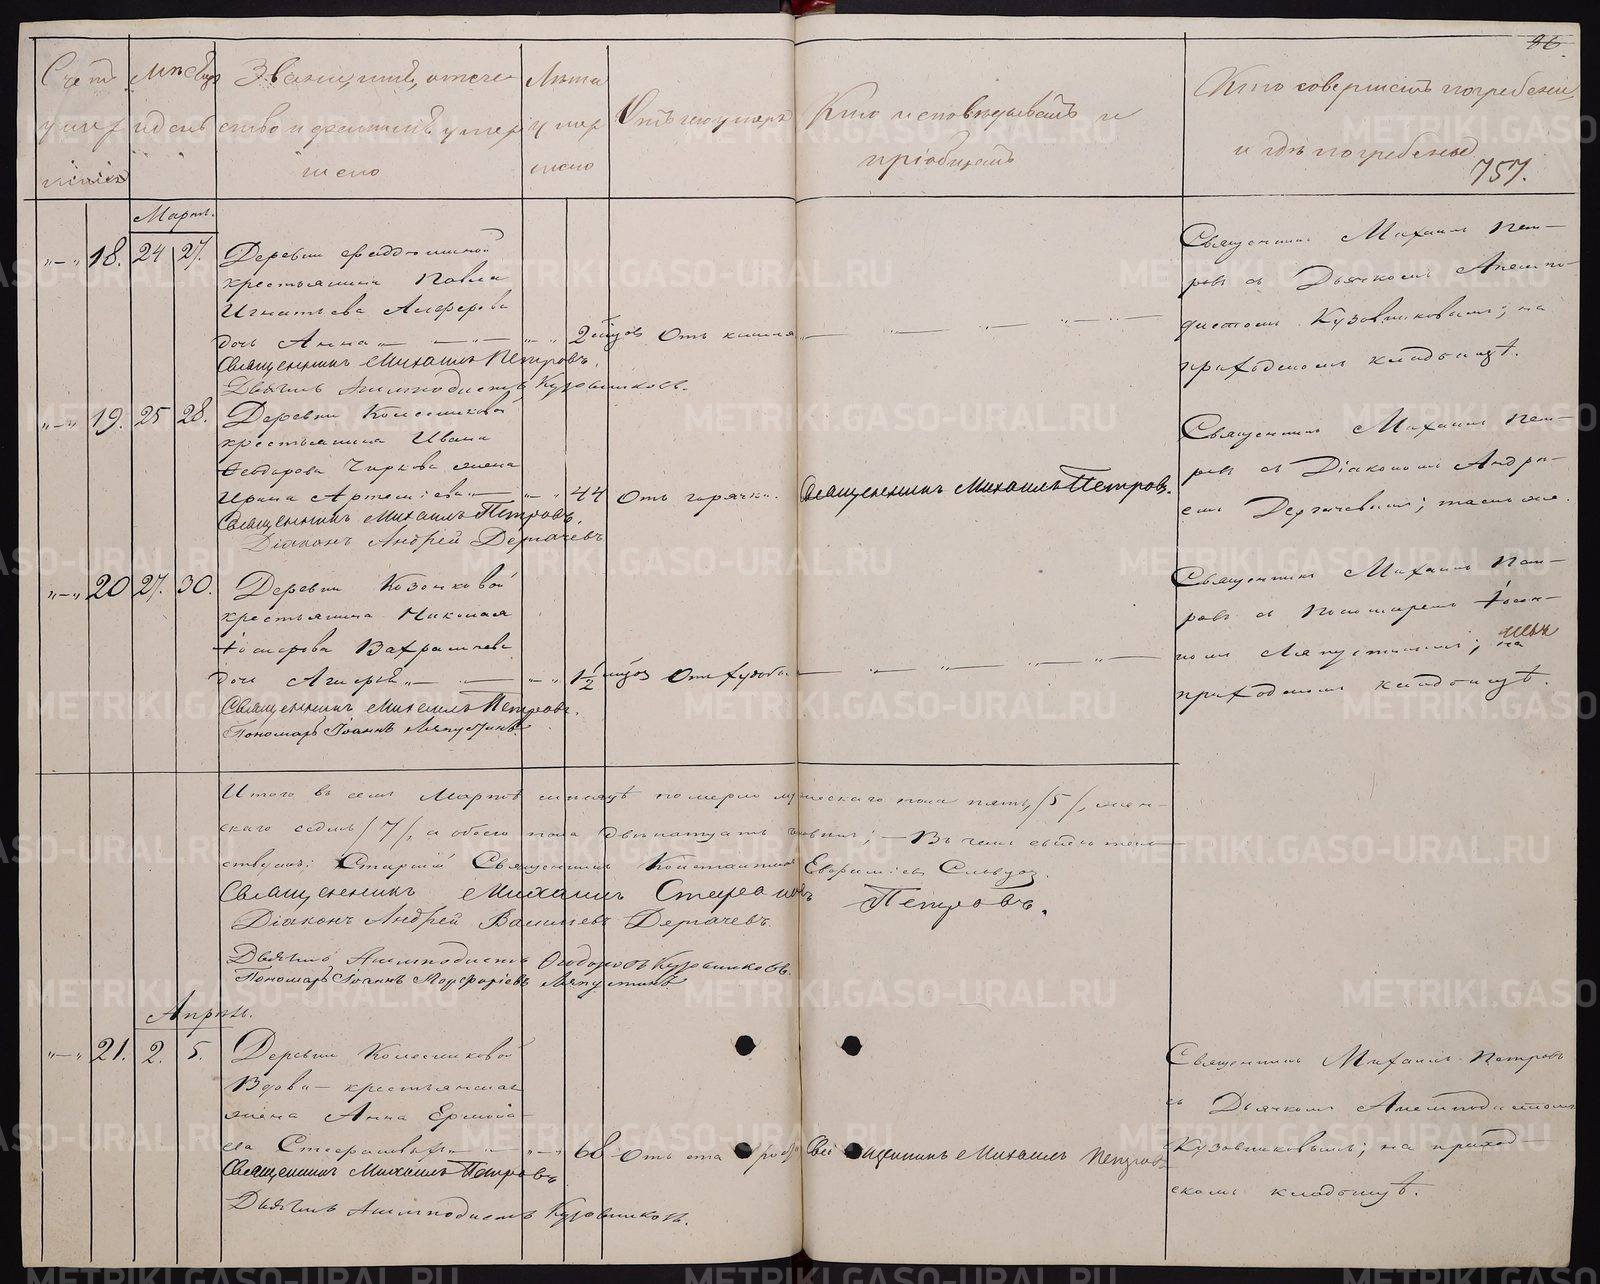 86.
757.
Счетъ умершихъ
Мѣсяцъ и день
Званіе, имя, отечество и фамилія умершаго
Лѣта умершаго
Отъ чего умеръ
Кто исповѣдывалъ и пріобщалъ
Кто совершалъ погребеніе и гдѣ погребены
Мартъ.
„—„ 18. 24 27.
Деревни
крестьянина Павла
Игнатьева Алферова
дочь Анна „ — „ — „ 2 мѣсяцовъ Отъ кашля
Священникъ Михаилъ Петровъ.
Дьячекъ Анемподистъ Кузовниковъ.
Священникъ Михаилъ Пет-
ровъ съ Дьячкомъ Анемпо-
дистомъ Кузовниковымъ; на
приходскомъ кладбищѣ.
„—„ 19. 25 28.
Деревни Колесниковой
крестьянина Ивана
Ѳеодорова Чиркова жена
Ирина Артемьева — „ — „ 44 Отъ горячки. Священникъ Михаилъ Петровъ.
Священникъ Михаилъ Петровъ.
Діаконъ Андрей Дергачевъ
Священникъ Михаилъ Пет-
ровъ съ Діакономъ Андре-
емъ Дергачевымъ; тамъ же.
„—„ 20 27. 30.
Деревни Козонковой
крестьянина Николая
Вахрамѣева
дочь „ — „ — „ 1 1/2 Отъ
Священникъ Михаилъ Петровъ.
Пономарь Іоаннъ Ляпустинъ
Священникъ Михаилъ Пет-
ровъ съ Пономаремъ Іоан-
номъ Ляпустинымъ; на
приходскомъ кладбищѣ.
Итого въ семъ Мартѣ мѣсяцѣ померло мужескаго пола пять /5/, жен-
скаго седмь /7/, а обоего пола двѣнатцать человѣкъ; — Въ чемъ свидѣтель-
ствуемъ: Старшій Священникъ Константинъ
Священникъ Михаилъ Стефановъ Петровъ.
Діаконъ Андрей Васильевъ Дергачевъ
Дьячекъ Анемподистъ Ѳеодоровъ Кузовниковъ.
Пономарь Іоаннъ Ляпустинъ
Апрѣль.
„—„ 21. 2. 5.
Деревни Колесниковой
Вдова — крестьянская
жена Анна Ермола-
ева „ — „ — „ 68 Отъ Священникъ Михаилъ Петровъ
Священникъ Михаилъ Петровъ
Дьячекъ Анемподистъ Кузовниковъ.
Священникъ Михаилъ Петровъ
съ Дьячкомъ Анемподистомъ
Кузовниковымъ; на приход-
скомъ кладбищѣ.
METRIKI.GASO-URAL.RU